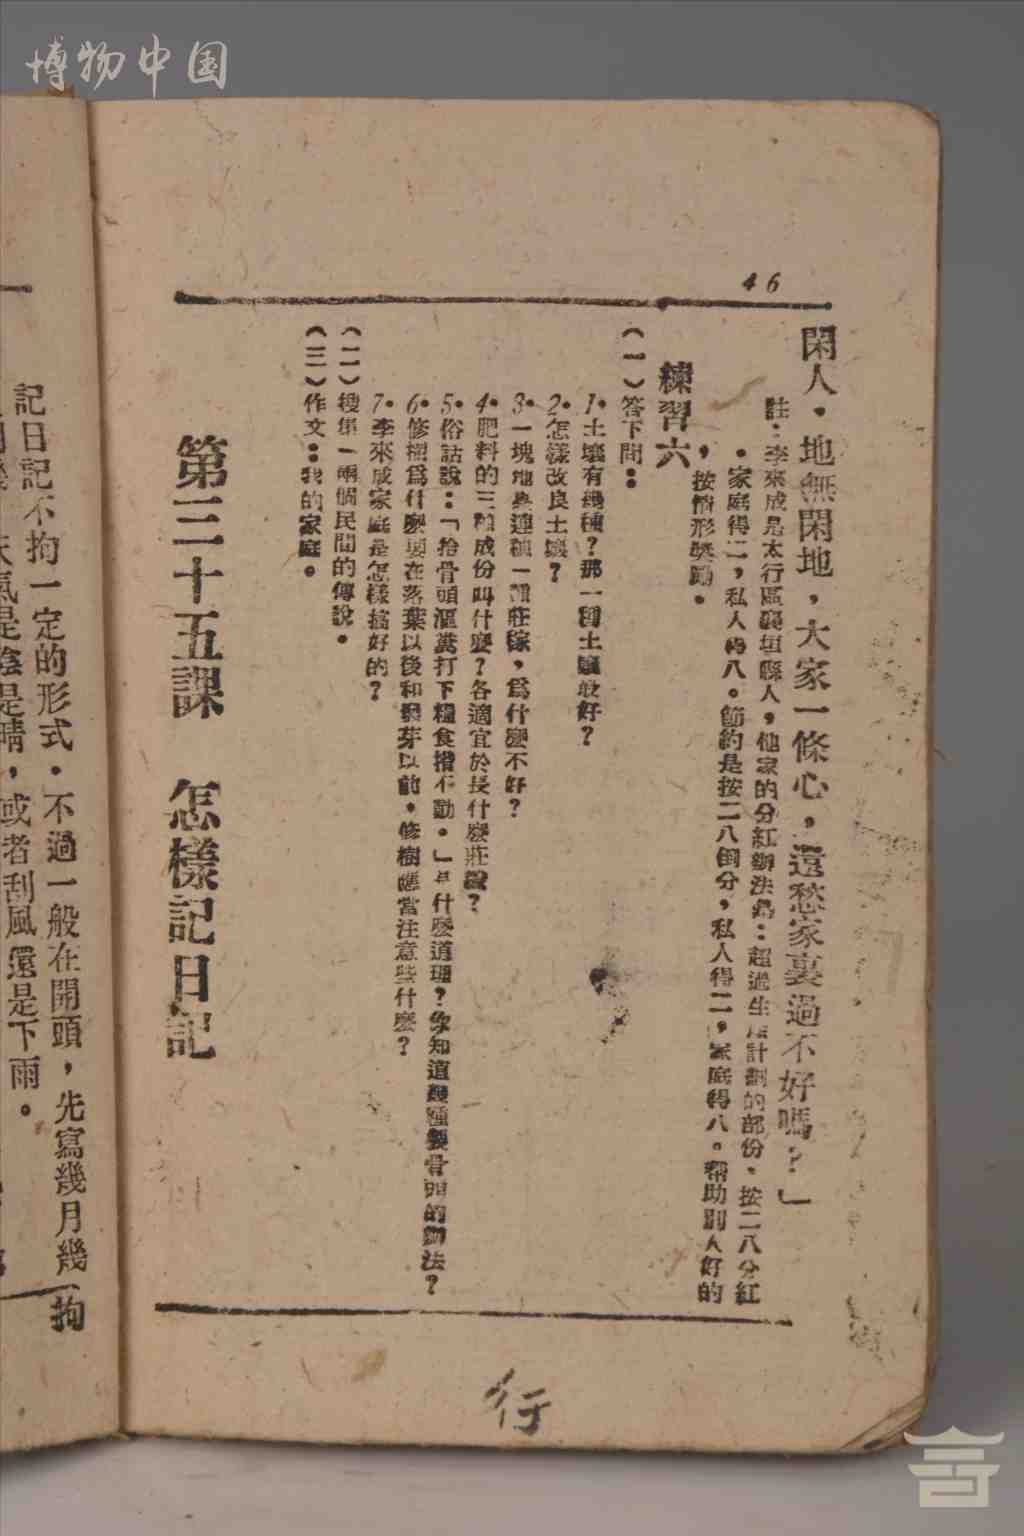 博物中国
46
閑人．地無閑地，大家一條心，還愁家裏過不好嗎？」
註：李來成是太行區襄垣縣人，他家的分紅辦法是：超過生產計劃的部份．按二八分紅
．家庭得二，私人得八。節約是按二八倒分，私人得二，家庭得八。幫助別人好的
，按情形獎勵．
練習六
（一）答下問：
1．土壤有幾種？那一種土壤最好？
2．怎樣改良土壤？
3．一塊地要連種一種莊稼，爲什麽不好？
4．肥料的三種成份叫什麽？各適宜於長什麽莊稼？
5．俗話說：「拾骨頭漚糞打下糧食揹不動．」是什麽道理？你知道幾種製骨肥的辦法？
6．修樹爲什麽要在落葉以後和發芽以前．修樹應當注意些什麽？
7．李來成家庭是怎樣搞好的？
（二）搜集一兩個民間的傳說．
（三）作文：我的家庭。
第三十五課　怎樣記日記
行
記日記不拘一定的形式．不過一般在開頭，先寫幾月幾
拘
天氣是陰是晴，或者刮風還是下雨。